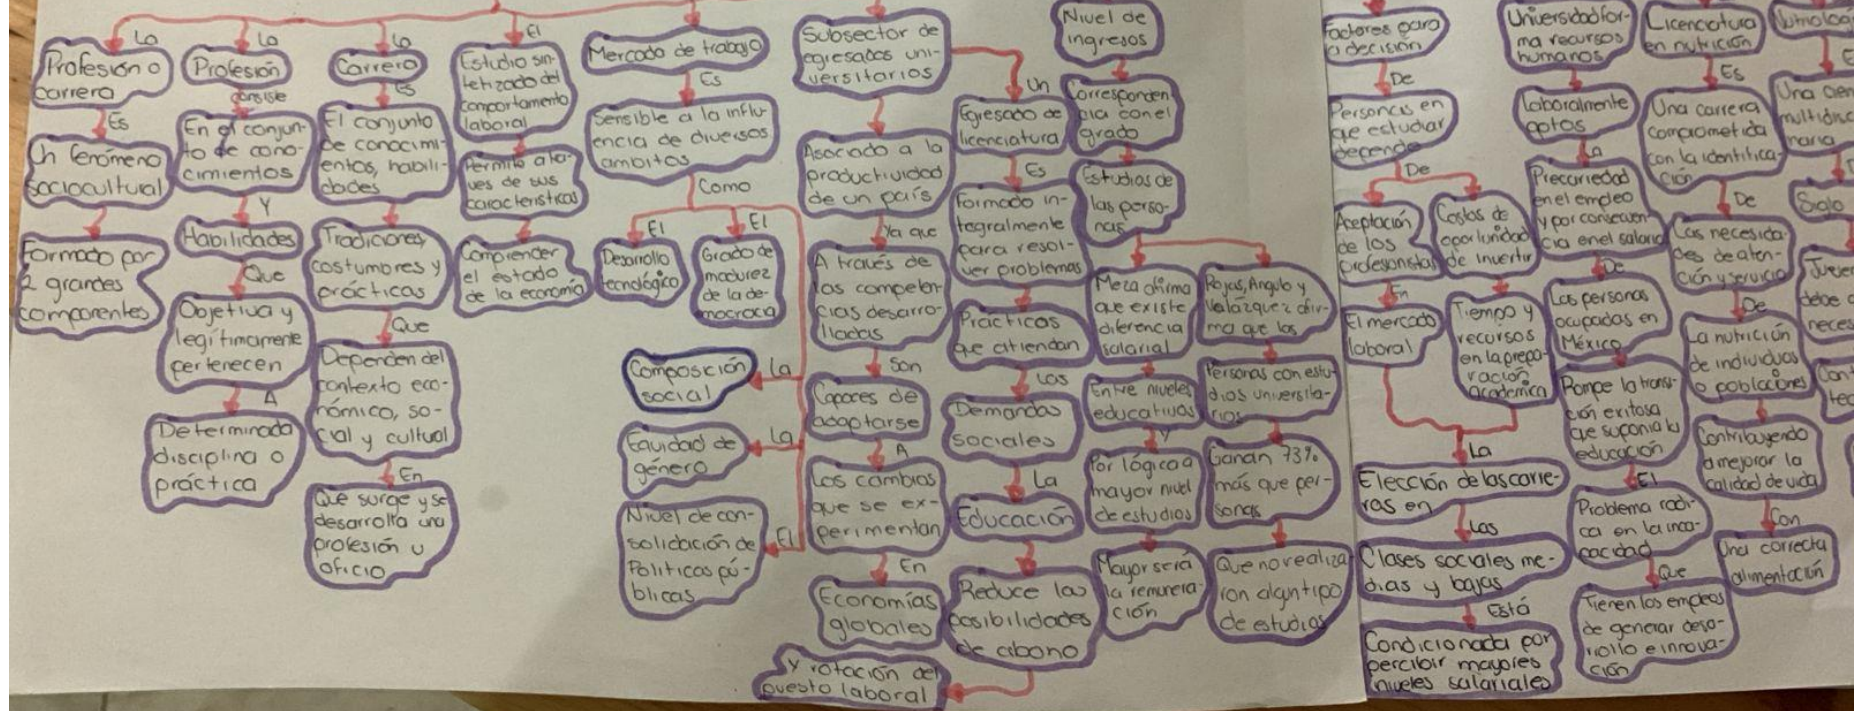 La
Profesión o
carrera
Es
Un fenómeno
sociocultural
Formado por
2 grandes
componentes
La
Profesión
consise
En el conjun-
to de cono-
cimientos
Y
Habilidades
Que
Objetiva y
legítimamente
pertenecen
A
Determinada
disciplina o
práctica
La
Carrera
Es
El conjunto
de conocimi-
entos, habili-
dades
Tradiciones,
costumbres y
prácticas
Que
Dependen del
contexto eco-
nómico, so-
cial y cultual
En
Que surge y se
desarrolla una
profesión u
oficio
El
Estudio sin-
tetizado del
comportamento
laboral
Permite a tra-
ves de sus
características
Comprender
el estado
de la economía
Mercado de trabajo
Es
Sensible a la influ-
encia de diversos
ambitos
Como
El
Desarrollo
tecnológico
El
Grado de
madurez
de la de-
mocracia
La
Composición
social
La
Equidad de
género
El
Nivel de con-
solidación de
Politicas pú-
blicas
Subsector de
egresados uni-
versitarios
Asociado a la
productividad
de un país
Ya que
A través de
las competen-
cias desarro-
lladas
Son
Capaces de
adaptarse
A
Los cambios
que se ex-
perimentan
En
Economías
globales
Un
Egresado de
licenciatura
Es
Formado in-
tegralmente
para resol-
ver problemas
Prácticas
que atiendan
Las
Demandas
sociales
La
Educación
Reduce las
posibilidades
de abono
y rotación del
puesto laboral
Nivel de
ingresos
Corresponden
cia con el
grado
Estudios de
las perso-
nas
Meza afirma
que existe
diferencia
salarial
Entre niveles
educativos
Y
Por lógica a
mayor nivel
de estudios
Mayor será
la remunera-
ción
Rojas, Angulo y
Velázquez afir-
ma que las
Personas con estu-
dios universita-
rios
Ganan 73%
más que per-
sonas
Que no realiza-
ron algun tipo
de estudios
Factores para
a decisión
De
Personas en
que estudiar
depende
De
Aceptación
de los
profesionistas
En
El mercado
laboral
Costos de
oportunidad
de invertir
Tiempo y
recursos
en la prepa-
ración
academica
La
Elección de las carre-
ras en
Las
Clases sociales me-
dias y bajas
Está
Condicionada por
percibir mayores
niveles salariales
Universidad for-
ma recursos
humanos
Laboralmente
aptos
La
Precariedad
en el empleo
y por consecuen-
cia en el salario
De
Las personas
ocupadas en
México
Rompe la transi-
ción exitosa
que suponia la
educación
El
Problema radi-
ca en la inca-
pacidad
Que
Tienen los empleos
de generar desa-
rrollo e innova-
ción
Licenciatura
en nutrición
Es
Una carrera
comprometida
con la identifica-
ción
De
Las necesida-
des de aten-
ción y servicio
De
La nutrición
de individuos
o poblaciones
Contribuyendo
a mejorar la
calidad de vida
Con
Una correcta
alimentación
Una cien
multidisc
naria
Siglo
debe
neces